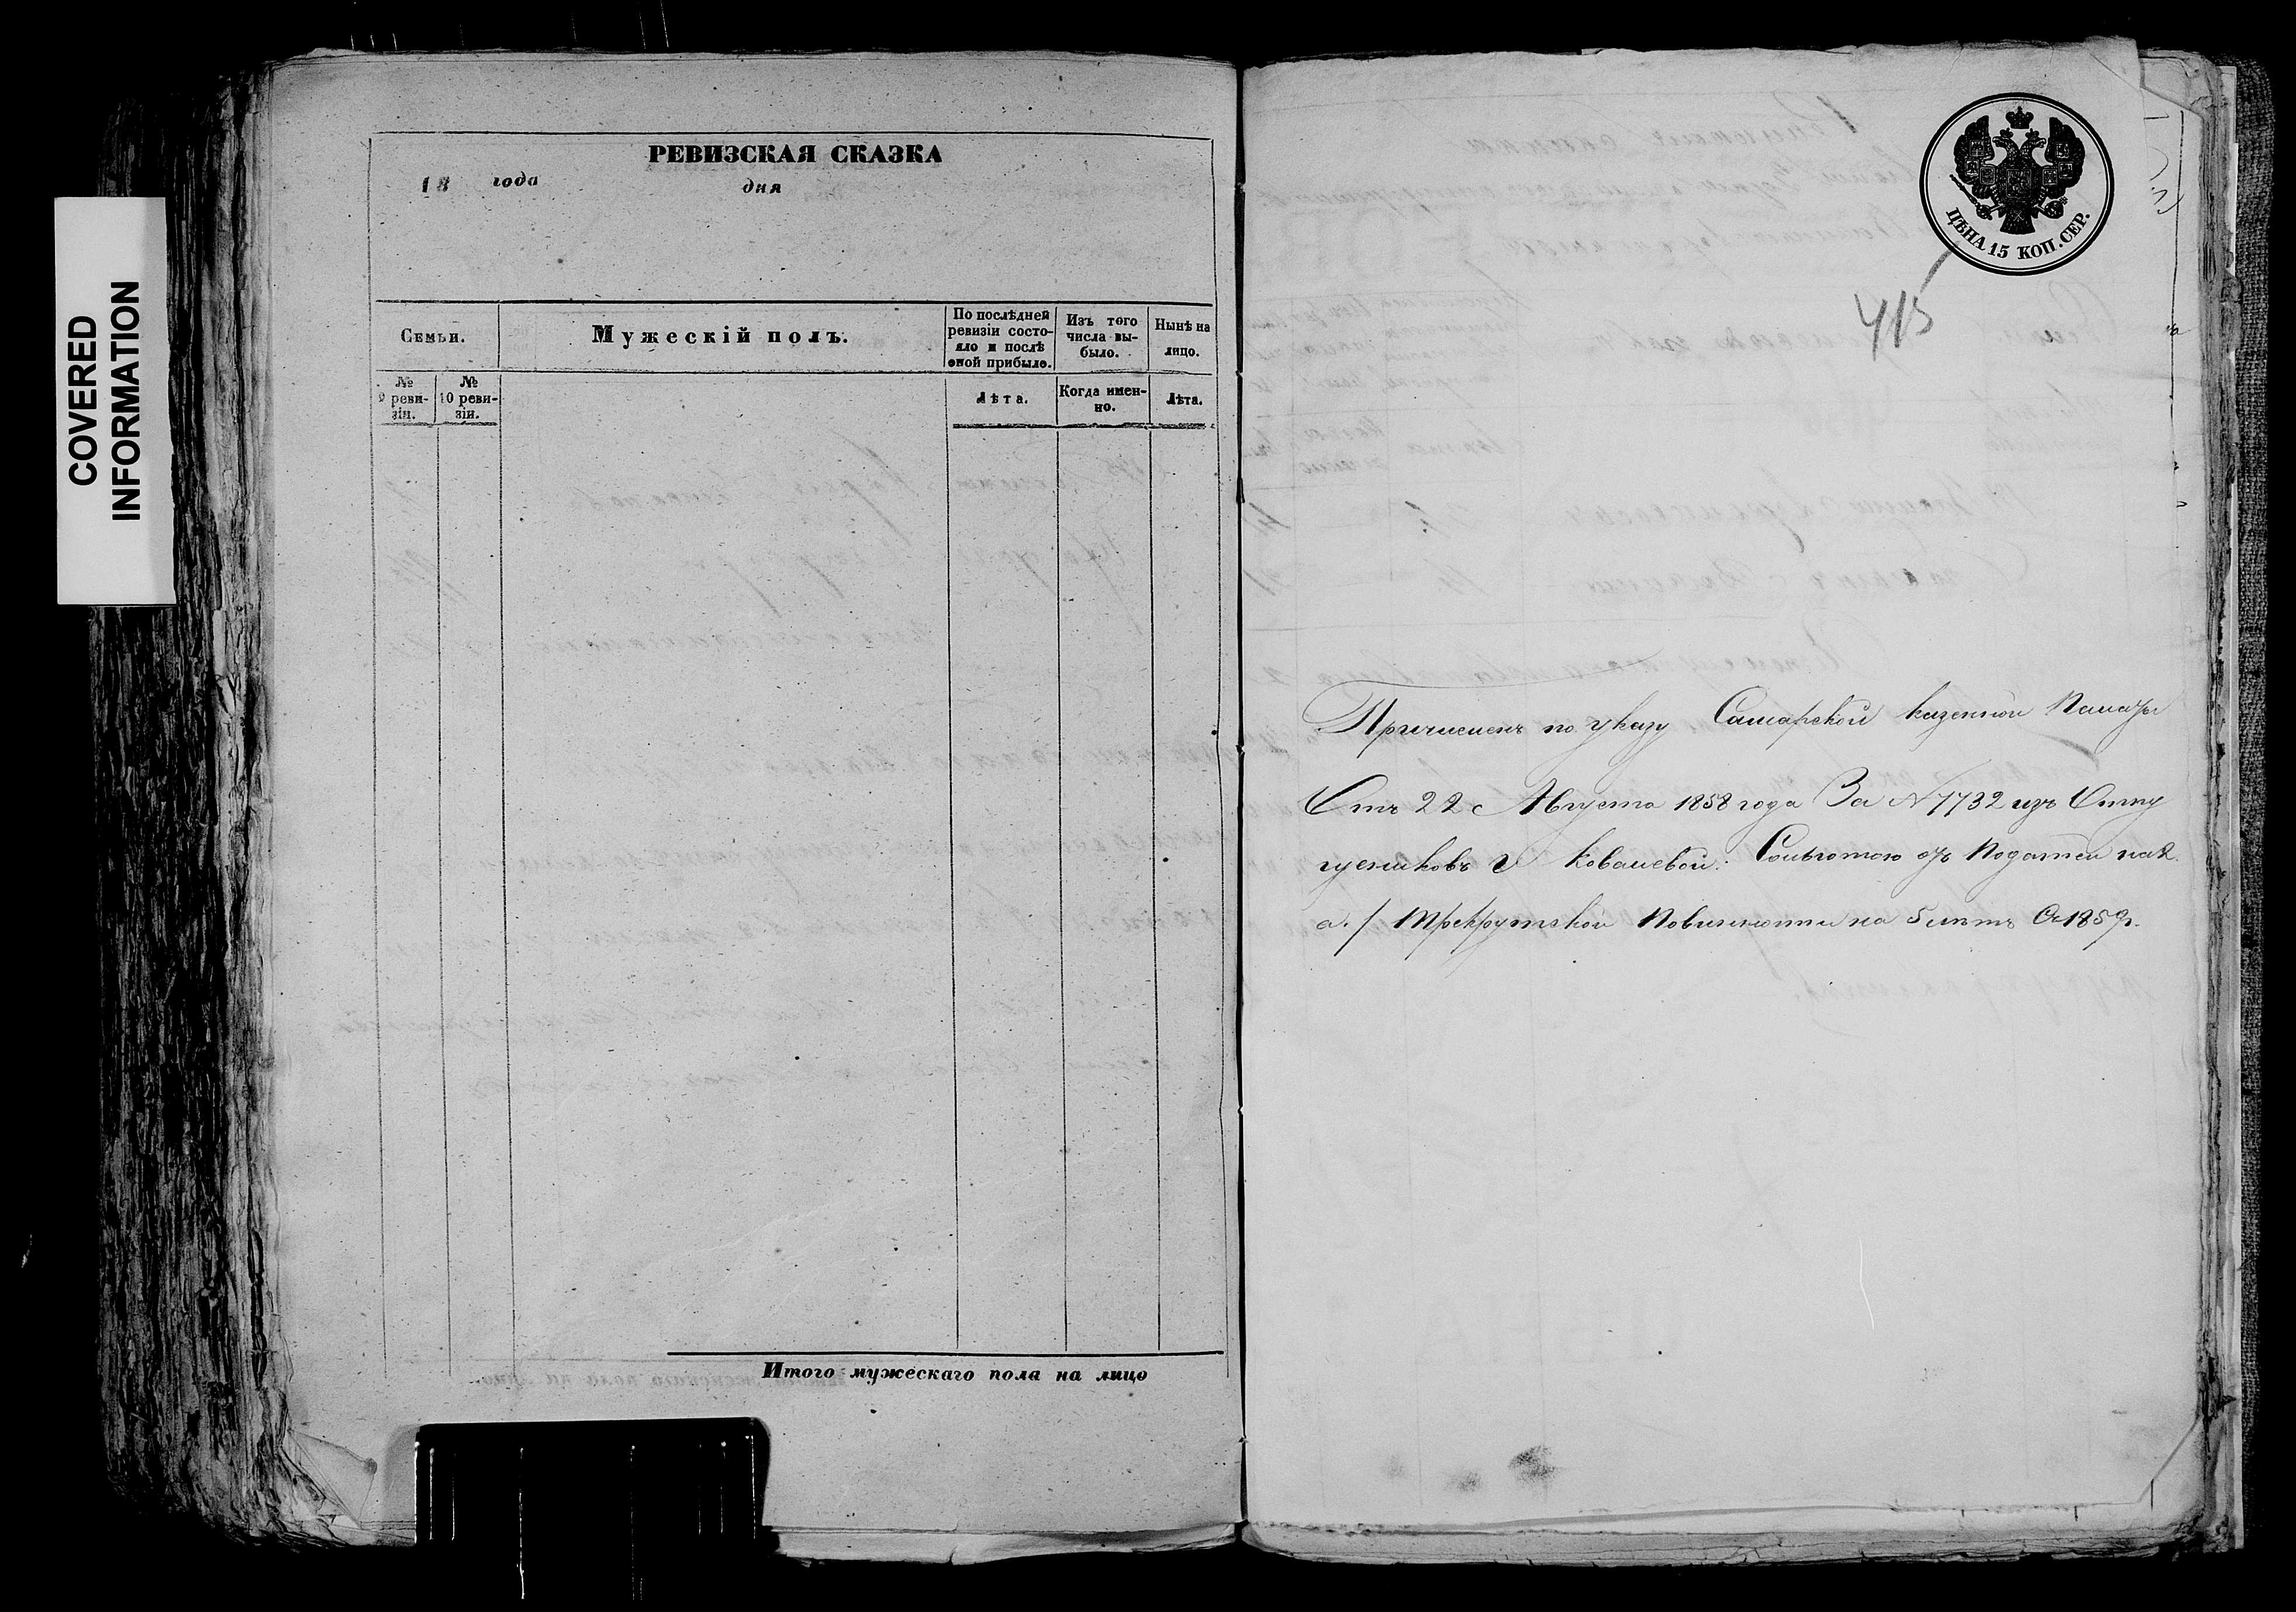 COVERED
INFORMATION
РЕВИЗСКАЯ СКАЗКА
18 года дня
Семьи.
Мужескій полъ.
По послѣдней
ревизіи состо-
яло и послѣ
оной прибыло.
Изъ того
числа вы-
было.
Нынѣ на
лицо.
№
9 реви-
зіи.
№
10 реви-
зіи.
Лѣта.
Когда имен-
но.
Лѣта.
Итого мужескаго пола на лицо
ЦѢНА 15 КОП. СЕР.
415
Причисленъ по указу Самарской казенной Палаты
Отъ 22 Августа 1858 года За № 7732 изъ Отпу
щениковъ Г Ковалевой: Сольготою отъ Податей на
рекрутской Повинности на 5 лѣтъ Съ 1859г.